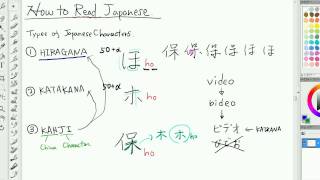 How to Read Japanese
Types of Japanese Characters
① HIRAGANA 50+α ほ ho 保 保 ほ ほ ほ
② KATAKANA ホ ho
③ KAHJI 50+α 保 ho → ホ ホ ho
China Character
video
↓
bideo
↓
ビデオ ← KATAKANA